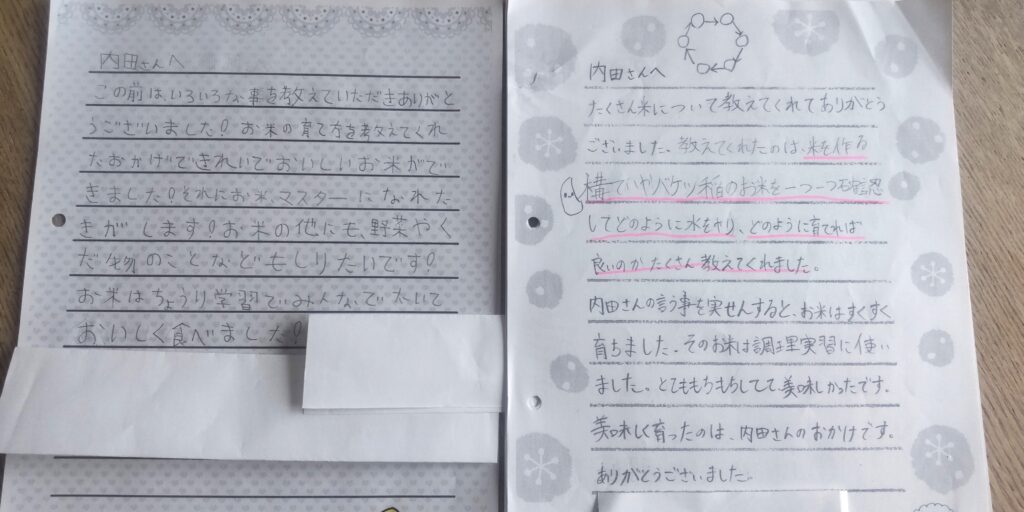 内田さんへ
この前は、いろいろな事を教えていただきありがと
うございました!お米の育て方を教えてくれ
たおかげできれいでおいしいお米がで
きました!それにお米マスターになれた
きがします!お米の他にも、野菜やく
だ物のことなどもしりたいです!
お米はちょうり学習でみんなでたいて
おいしく食べました!
内田さんへ
たくさん米について教えてくれてありがとう
ございました。教えてくれたのは、米を作る
構ていやバケツ稲のお米を一つ一つ確認
してどのように水をやり、どのように育てれば
良いのかたくさん教えてくれました。
内田さんの言う事を実せんすると、お米はすくすく
育ちました。そのお米は調理実習に使い
ました。とてももちもちしてて美味しかったです。
美味しく育ったのは、内田さんのおかげです。
ありがとうございました。